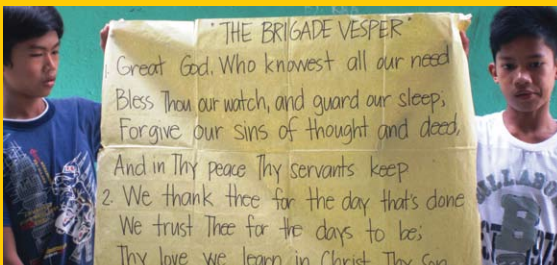 "THE BRIGADE VESPER"
1. Great God, Who knowest all our need
Bless Thou our watch, and guard our sleep;
Forgive our sins of thought and deed,
And in Thy peace Thy servants keep
2. We thank thee for the day that's done
We trust Thee for the days to be;
Thy love we learn in Christ Thy Son